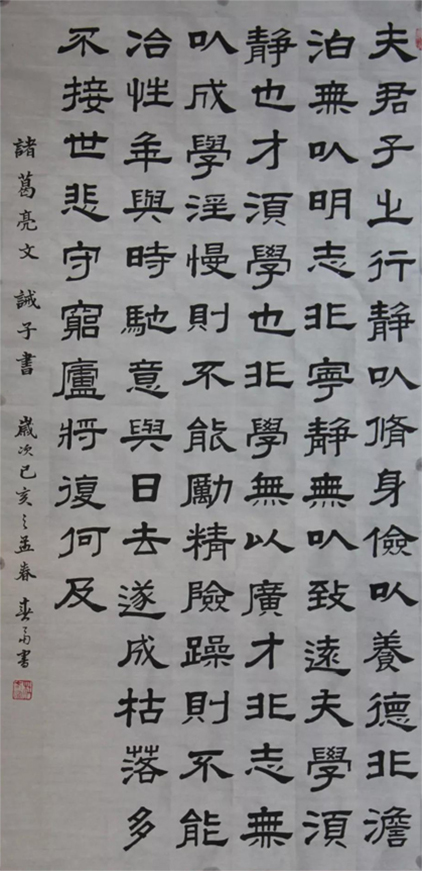 夫君子之行静㕥脩身儉㕥養德非澹
泊無㕥明志非寧静無㕥致遠夫學須
静也才須學也非學無以廣才非志無
㕥成學淫慢則不能勵精險躁則不能
冶性年與時馳意與日去遂成枯落多
不接世悲守窮廬將復何及
諸葛亮文 誡子書 歲次己亥之孟春 書